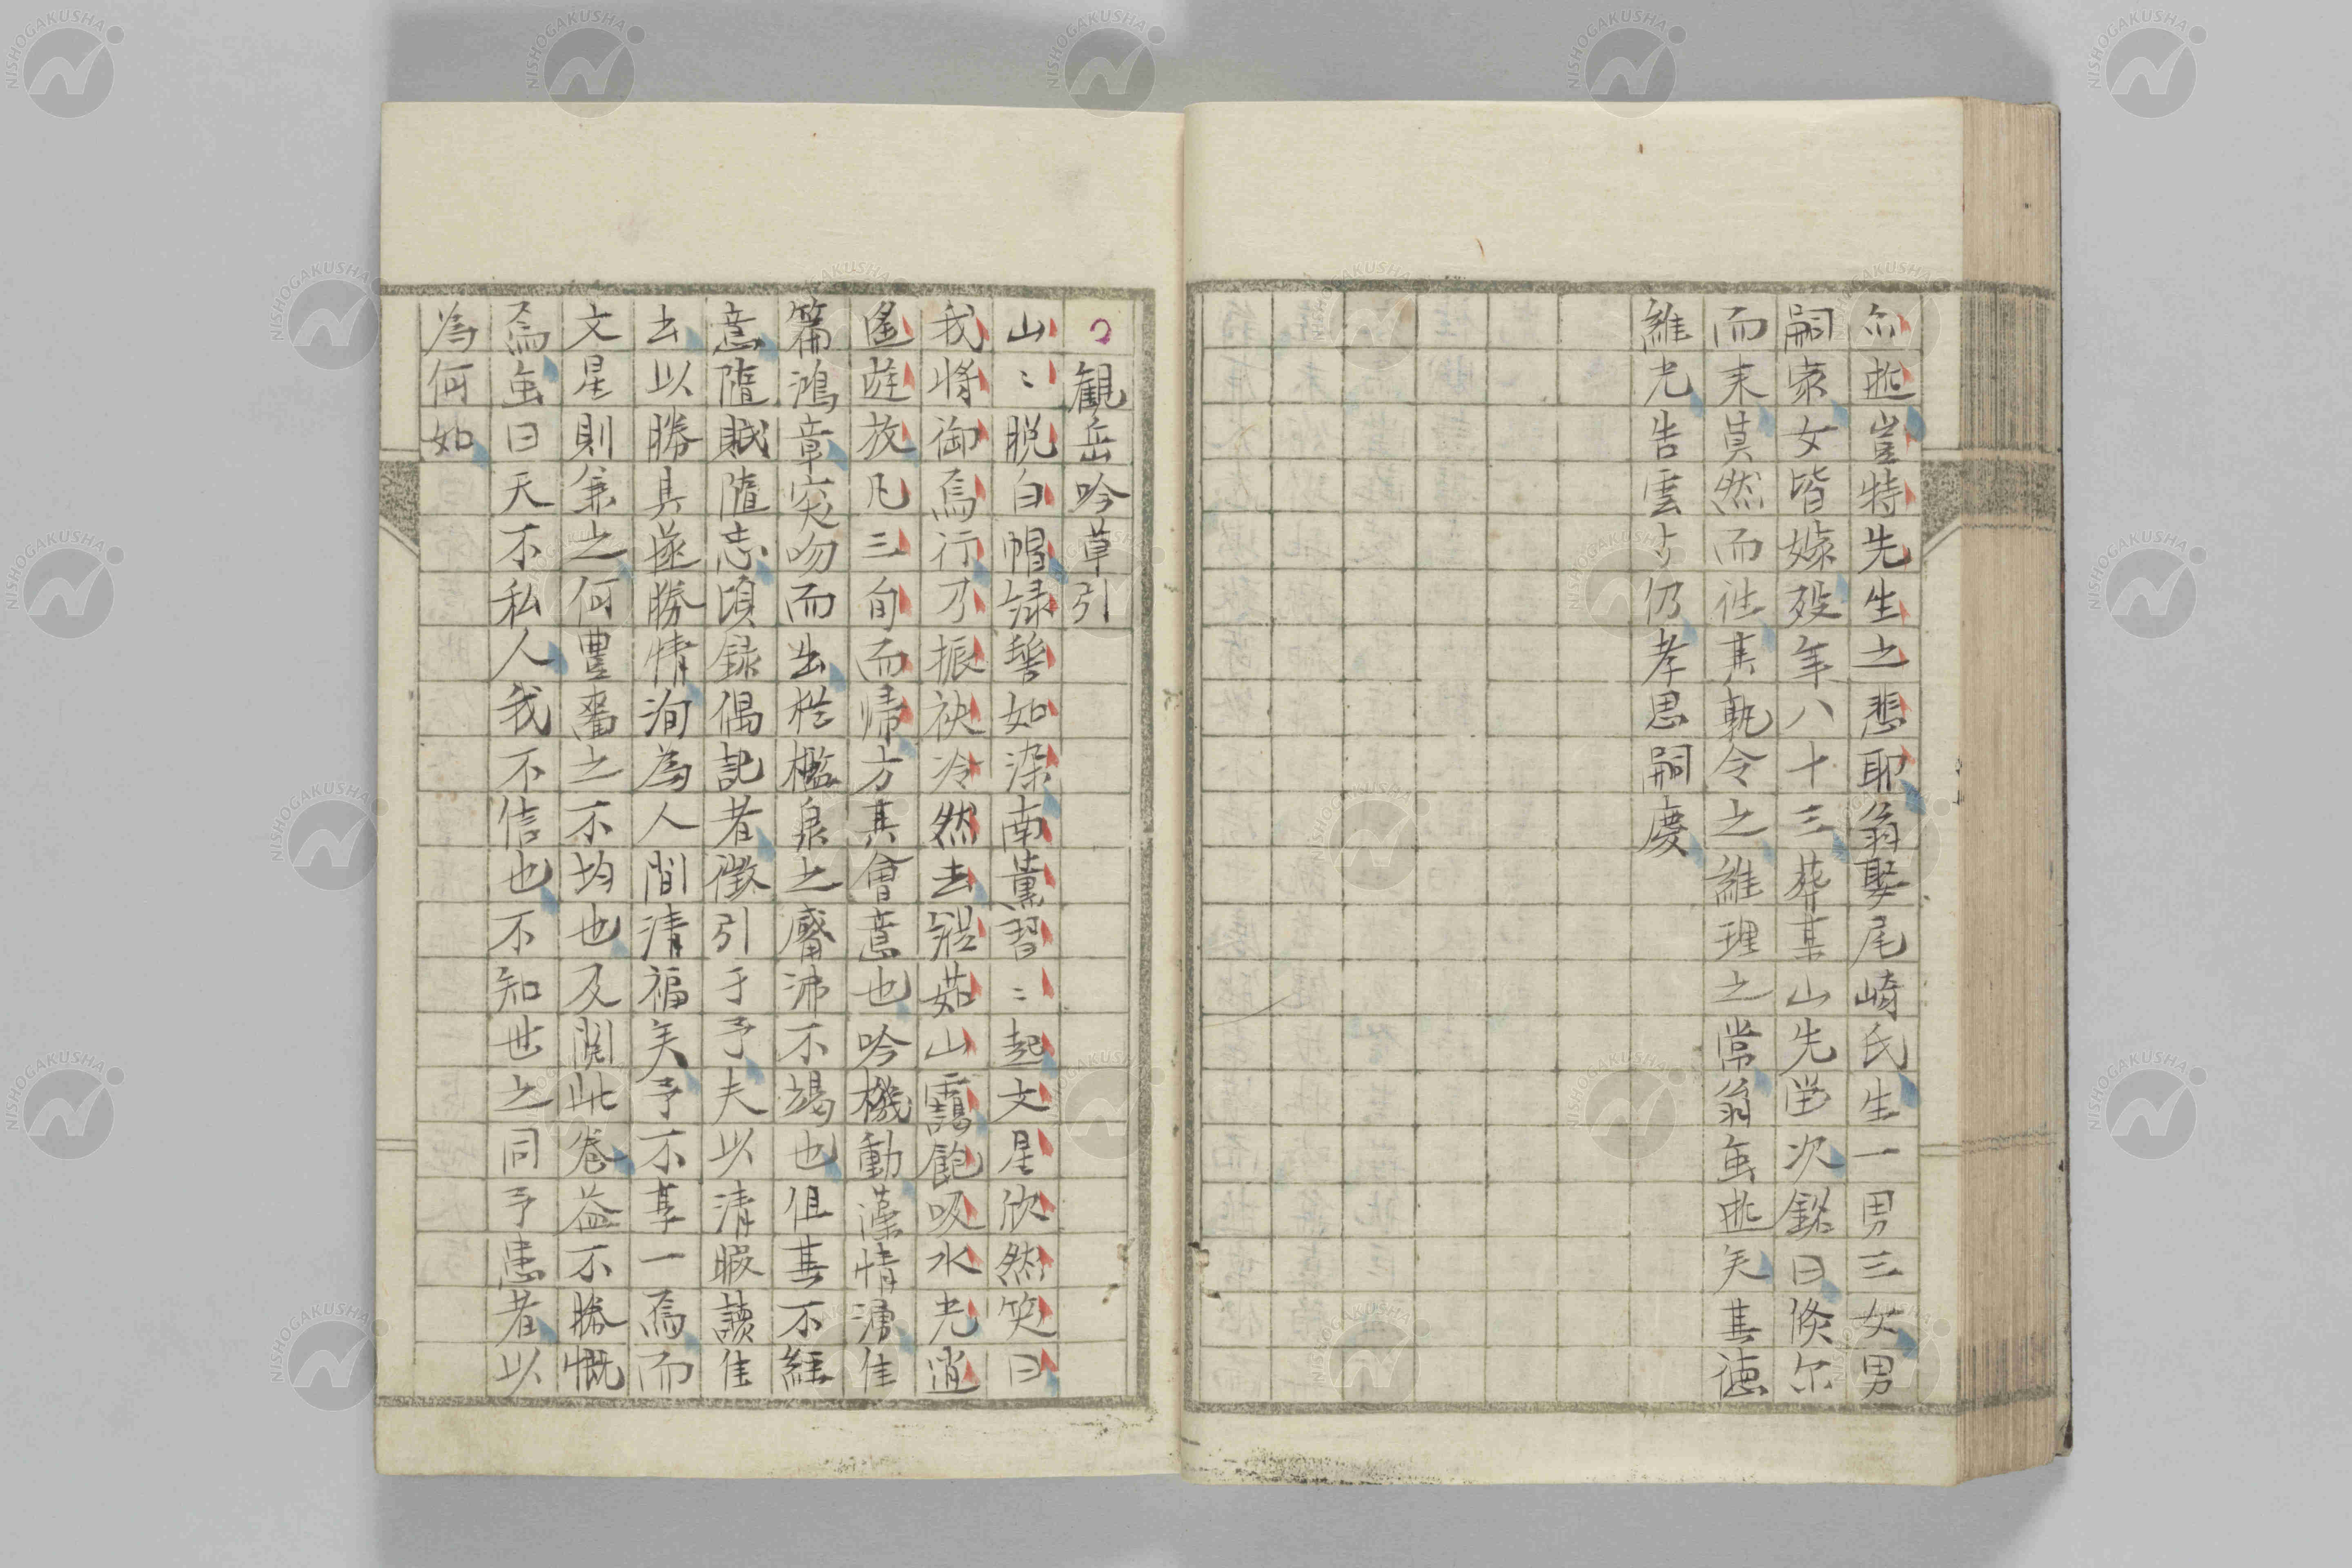 尓逝豈特先生之悲耶翁娶尾崎氏生一男三女男
嗣家女皆嫁殁年八十三葬某山先塋次銘曰倏尓
而来莫然而往其執令之維理之常翁虽逝矣其徳
維光告雲与仍孝思嗣慶
観岳吟草引
山〻脱白帽緑髻如染南薫習〻起文星欣然笑曰
我将御焉行乃振袂冷然去躡茹山靄飽吸水光逍
遙遊放凡三旬而帰方其會意也吟機動藻情湧佳
篇鴻章突吻而出檻泉之觱沸不竭也但其不経
意隨賦隨忘頃録偶記者徴引于予夫以清暇讀佳
去以勝具遂勝情洵為人間清福矣予不享一焉而
文星則兼之何豊嗇之不均也及閲此巻益不勝慨
焉虽曰天不私人我不信也不知世之同予患者以
為何如
NISHOGAKUSHA